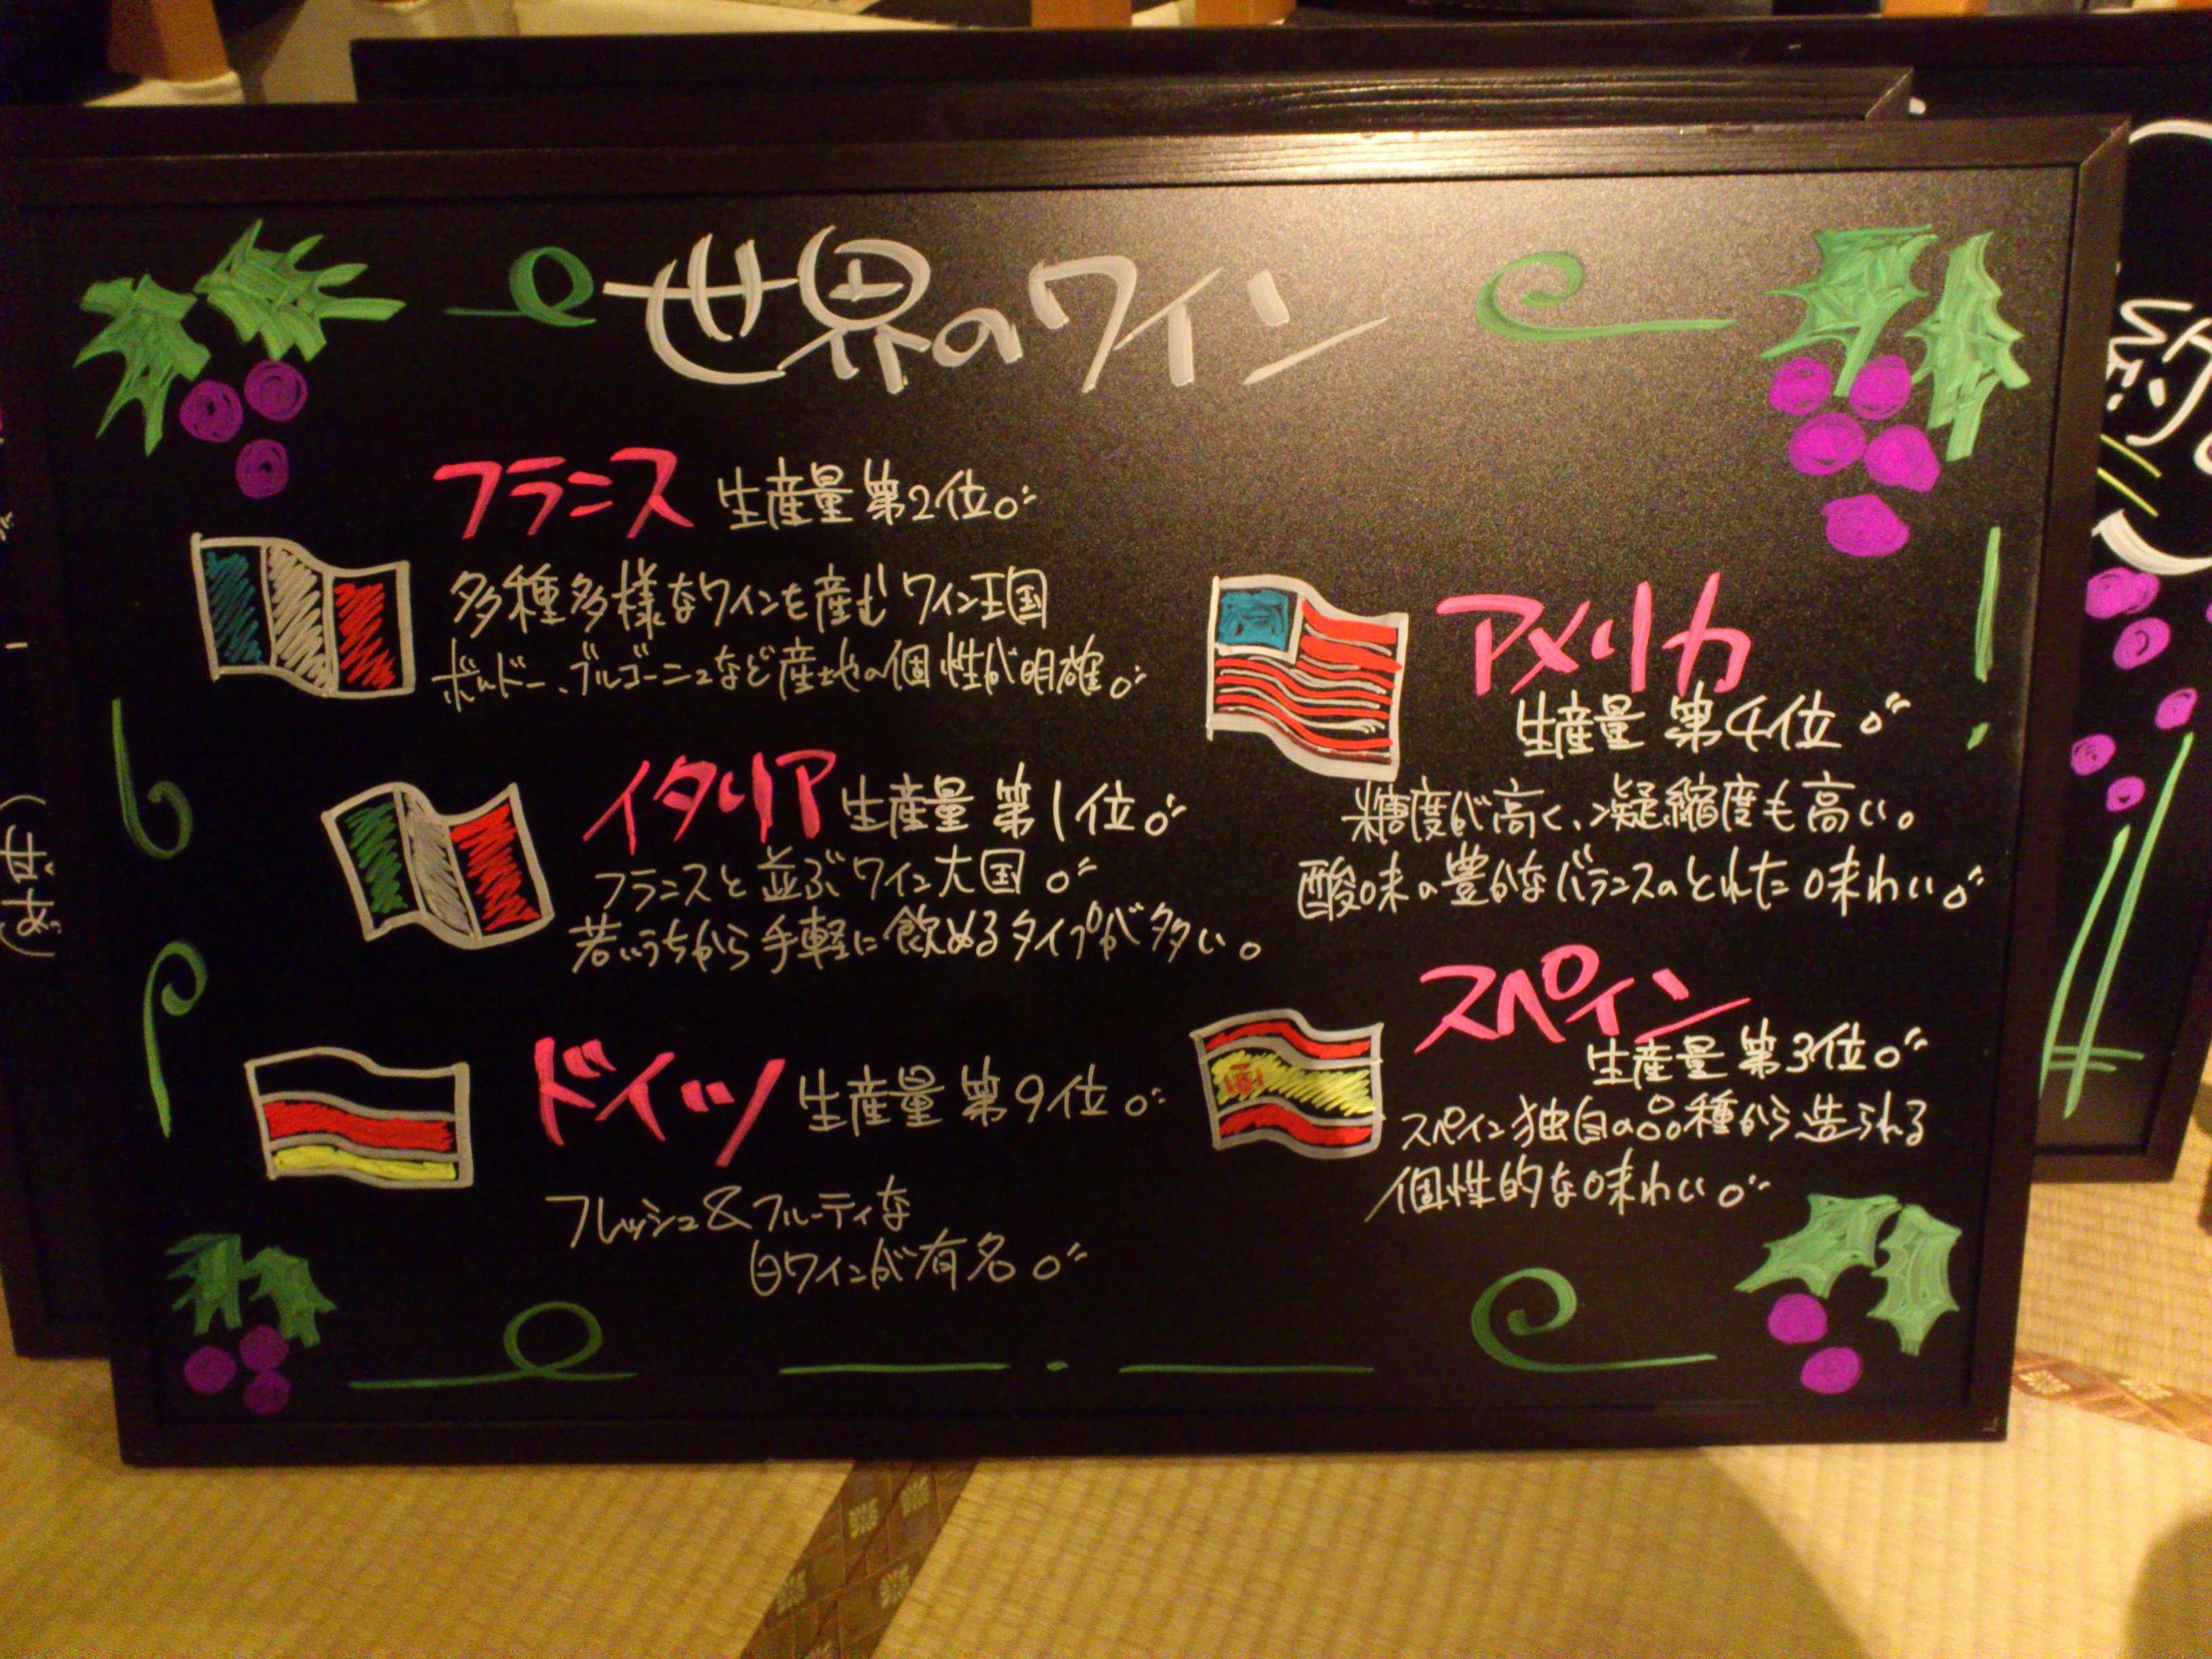 世界のワイン
フランス 生産量 第2位。
多種多様なワインを産む ワイン王国
ボルドー、ブルゴーニュなど産地の個性が明確。
イタリア 生産量 第1位。
フランスと並ぶワイン大国。
若いうちから手軽に飲めるタイプが多い。
ドイツ 生産量 第9位。
フレッシュ&フルーティな
白ワインが有名。
アメリカ
生産量 第4位。
糖度が高く、凝縮度も高い。
酸味の豊かなバランスのとれた味わい。
スペイン
生産量 第3位。
スペイン独自の品種から造られる
個性的な味わい。